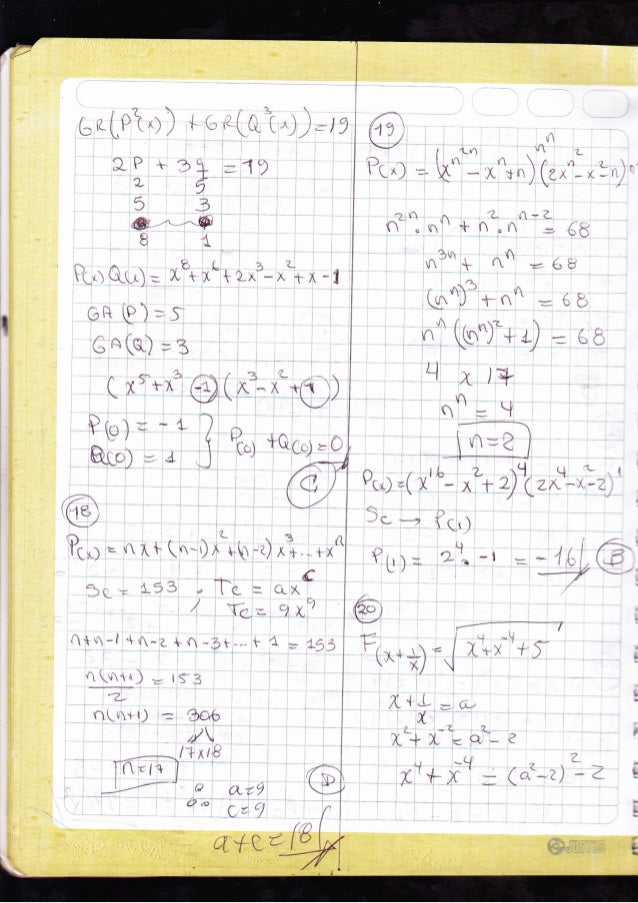 GR(P²(x)) + GR(Q³(x)) = 19
2P + 3q = 19
2 5
5 3
8 1
P(x) Q(x) = x⁸+x⁶+2x³-x²+x-1
GA(P) = 5
GA(Q) = 3
(x⁵+x³-1)(x³-x²+1)
P(0) = -1
Q(0) = 1
P(0) + Q(0) = 0
C
18
P(x) = nx+(n-1)x²+(n-2)x³+...+xⁿ
Sc = 153 , Tc = ax^c
Tc = 9x⁹
n+n-1+n-2+n-3+...+1 = 153
n(n+1)/2 = 153
n(n+1) = 306
17x18
n=17
∴ a=9
c=9
D
a+c=18
19
P(x) = (x^n^2n - x^n + n)^n^n (2x^n² - x² - n)
n^2n . n^n + n² . n^n-2 = 68
n^3n + n^n = 68
(n^n)³ + n^n = 68
n^n((n^n)²+1) = 68
4 x 17
n^n = 4
n=2
P(x)=(x¹⁶-x²+2)⁴(2x⁴-x²-2)¹
Sc → P(1)
P(1) = 2⁴.-1 = -16
B
20
F(x+1/x) = √x⁴+x⁻⁴+5
x+1/x = a
x²+x⁻² = a²-2
x⁴+x⁻⁴ = (a²-2)²-2
JUSTUS